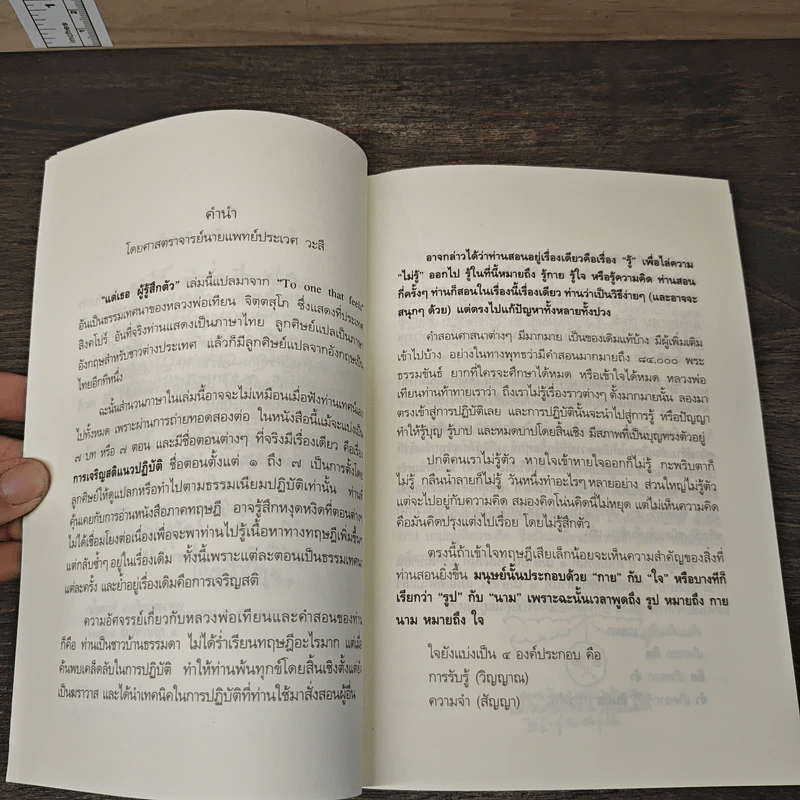 คำนำ
โดยศาสตราจารย์นายแพทย์ประเวศ วะสี
"แด่เธอ ผู้รู้สึกตัว" เล่มนี้แปลมาจาก "To one that feels"
อันเป็นธรรมเทศนาของหลวงพ่อเทียน จิตฺตสุโภ ซึ่งแสดงที่ประเทศ
สิงคโปร์ อันที่จริงท่านแสดงเป็นภาษาไทย ลูกศิษย์แปลเป็นภาษา
อังกฤษสำหรับชาวต่างประเทศ แล้วก็มีลูกศิษย์แปลจากอังกฤษเป็น
ไทยอีกทีหนึ่ง
ฉะนั้นสำนวนภาษาในเล่มนี้อาจจะไม่เหมือนเมื่อฟังท่านเทศน์เอง
ไปทั้งหมด เพราะผ่านการถ่ายทอดสองต่อ ในหนังสือนี้แม้จะแบ่งเป็น
๗ บท หรือ ๗ ตอน และมีชื่อตอนต่างๆ ที่จริงมีเรื่องเดียว คือเรื่อง
การเจริญสติแนวปฏิบัติ ชื่อตอนตั้งแต่ ๑ ถึง ๗ เป็นการตั้งโดย
ลูกศิษย์ให้ดูแปลกหรือทำไปตามธรรมเนียมปฏิบัติเท่านั้น
คุ้นเคยกับการอ่านหนังสือภาคทฤษฎี อาจรู้สึกหงุดหงิดที่ตอนต่างๆ
ไม่ได้เชื่อมโยงต่อเนื่องเพื่อจะพาท่านไปรู้เนื้อหาทางทฤษฎีเพิ่มขึ้น
แต่กลับซ้ำๆ อยู่ในเรื่องเดิม ทั้งนี้เพราะแต่ละตอนเป็นธรรมเทศนา
แต่ละครั้ง และย้ำอยู่เรื่องเดิมคือการเจริญสติ
ความอัศจรรย์เกี่ยวกับหลวงพ่อเทียนและคำสอนของท่าน
ก็คือ ท่านเป็นชาวบ้านธรรมดา ไม่ได้ร่ำเรียนทฤษฎีอะไรมาก แต่เมื่อ
ค้นพบเคล็ดลับในการปฏิบัติ ทำให้ท่านพ้นทุกข์โดยสิ้นเชิงตั้งแต่ยัง
เป็นฆราวาส และได้นำเทคนิคในการปฏิบัติที่ท่านใช้มาสั่งสอนผู้อื่น
อาจกล่าวได้ว่าท่านสอนอยู่เรื่องเดียวคือเรื่อง "รู้" เพื่อไล่ความ
"ไม่รู้" ออกไป รู้ในที่นี้หมายถึง รู้กาย รู้ใจ หรือรู้ความคิด ท่านสอน
กี่ครั้งๆ ท่านก็สอนในเรื่องนี้เรื่องเดียว ท่านว่าเป็นวิธีง่ายๆ (และอาจจะ
สนุกๆ ด้วย) แต่ตรงไปแก้ปัญหาทั้งหลายทั้งปวง
คำสอนศาสนาต่างๆ มีมากมาย เป็นของเดิมแท้บ้าง มีผู้เพิ่มเติม
เข้าไปบ้าง อย่างในทางพุทธว่ามีคำสอนมากมายถึง ๘๔,๐๐๐ พระ
ธรรมขันธ์ ยากที่ใครจะศึกษาได้หมด หรือเข้าใจได้หมด หลวงพ่อ
เทียนท่านท้าทายเราว่า ถึงเราไม่รู้เรื่องราวต่างๆ ตั้งมากมายนั้น ลองมา
ตรงเข้าสู่การปฏิบัติเลย และการปฏิบัตินั้นจะนำไปสู่การรู้ หรือปัญญา
ทำให้รู้บุญ รู้บาป และหมดบาปโดยสิ้นเชิง มีสภาพที่เป็นบุญทรงตัวอยู่
ปกติคนเราไม่รู้ตัว หายใจเข้าหายใจออกก็ไม่รู้ กะพริบตาก็
ไม่รู้ กลืนน้ำลายก็ไม่รู้ วันหนึ่งทำอะไรๆ หลายอย่าง ส่วนใหญ่ไม่รู้ตัว
แต่จะไปอยู่กับความคิด สมองคิดโน่นคิดนี่ไม่หยุด แต่ไม่เห็นความคิด
คือมันคิดปรุงแต่งไปเรื่อย โดยไม่รู้สึกตัว
ตรงนี้ถ้าเข้าใจทฤษฎีเสียเล็กน้อยจะเห็นความสำคัญของสิ่งที่
ท่านสอนยิ่งขึ้น มนุษย์นั้นประกอบด้วย "กาย" กับ "ใจ" หรือบางทีก็
เรียกว่า "รูป" กับ "นาม" เพราะฉะนั้นเวลาพูดถึง รูป หมายถึง กาย
นาม หมายถึง ใจ
ใจยังแบ่งเป็น ๔ องค์ประกอบ คือ
การรับรู้ (วิญญาณ)
ความจำ (สัญญา)